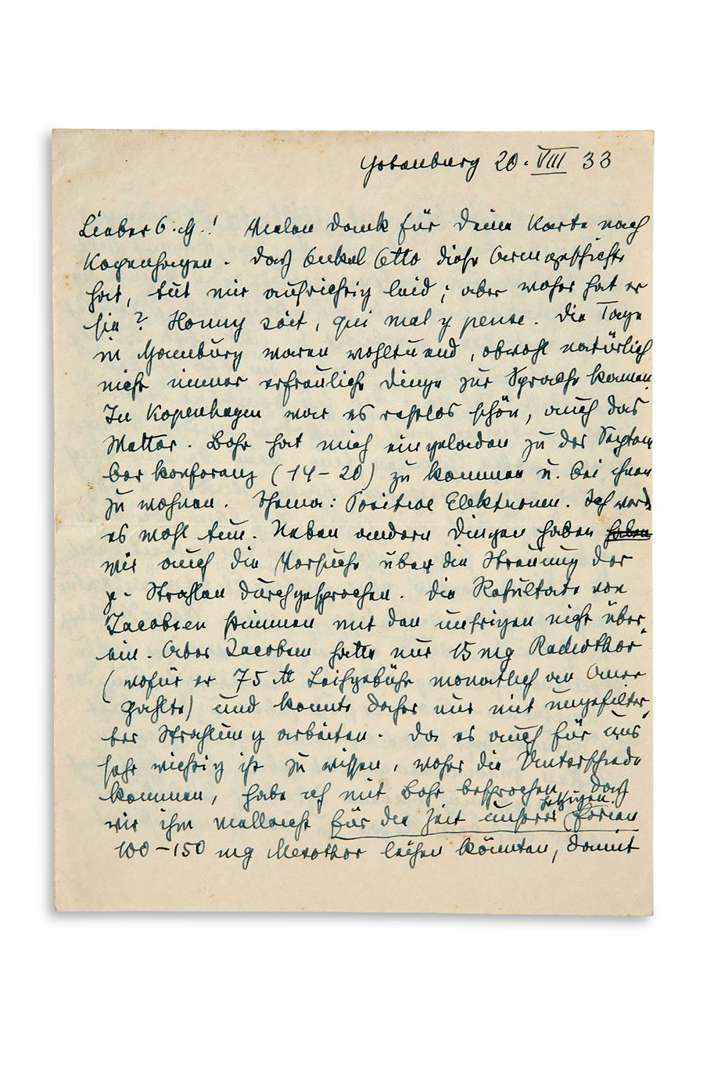 Gotenburg 20. VIII 33
Lieber G. M.! Vielen Dank für Deine Karte nach
Kopenhagen. Daß Onkel Otto diese Armgeschichte
hat, tut mir aufrichtig leid; aber woher hat er
sie? Honny soit, qui mal y pense. Die Tage
in Hamburg waren wohltuend, obwohl natürlich
nicht immer erfreuliche Dinge zur Sprache kamen.
In Kopenhagen war es restlos schön, auch das
Wetter. Bohr hat mich eingeladen zu der Septem
ber konferenz (14-20) zu kommen u. bei ihnen
zu wohnen. Thema: Positive Elektronen. Ich werde
es wohl tun. Neben andern Dingen haben haben
wir auch die Versuche über die Streuung der
γ-Strahlen durchgesprochen. Die Resultate von
Jacobsen stimmen mit den unsrigen nicht über
ein. Aber Jacobsen hatte nur 15 mg Radiothor
(wofür er 75 M Leihgebühr monatlich an Auer
zahlte) und konnte daher nur mit ungefilter
ter Strahlung arbeiten. Da es auch für uns
sehr wichtig ist zu wissen, woher die Unterschiede
kommen, habe ich mit Bohr besprochen, daß
wir ihm vielleicht für die Zeit unserer jetzigen Ferien
100-150 mg Mesothor leihen könnten, damit